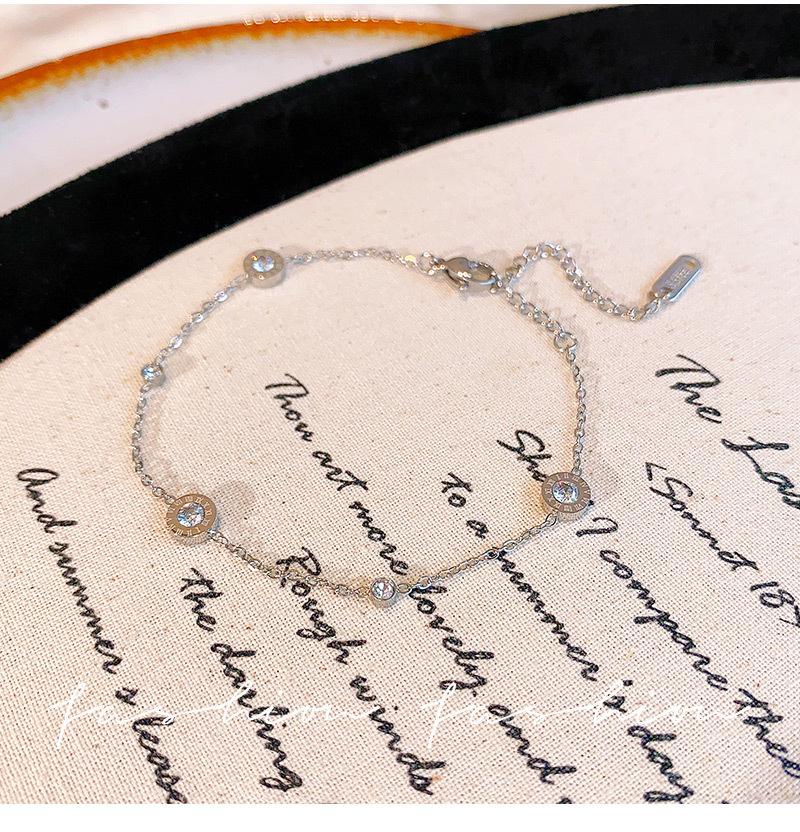 The Las
<Sonnet 18>
Sh I compare thee
to a summer's day
Thou art more lovely and
Rough winds
the darling
And summer's lease
fashion fashion